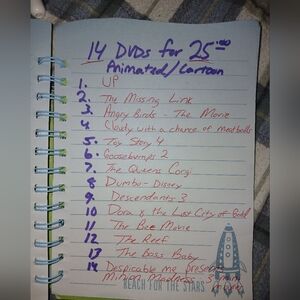 14 DVDs for 25.00
Animated/Cartoon
1. UP
2. The Missing Link
3. Angry Birds - The Movie
4. Cloudy with a chance of meatballs
5. Toy Story 4
6. Goosebumps 2
7. The Queens Corgi
8 Dumbo - Disney
9. Descendants 3
10 Dora & the Lost City of Gold
11 The Bee Movie
12 The Reef
13 The Boss Baby
14 Despicable me presents
Minion Madness 3
REACH FOR THE STARS